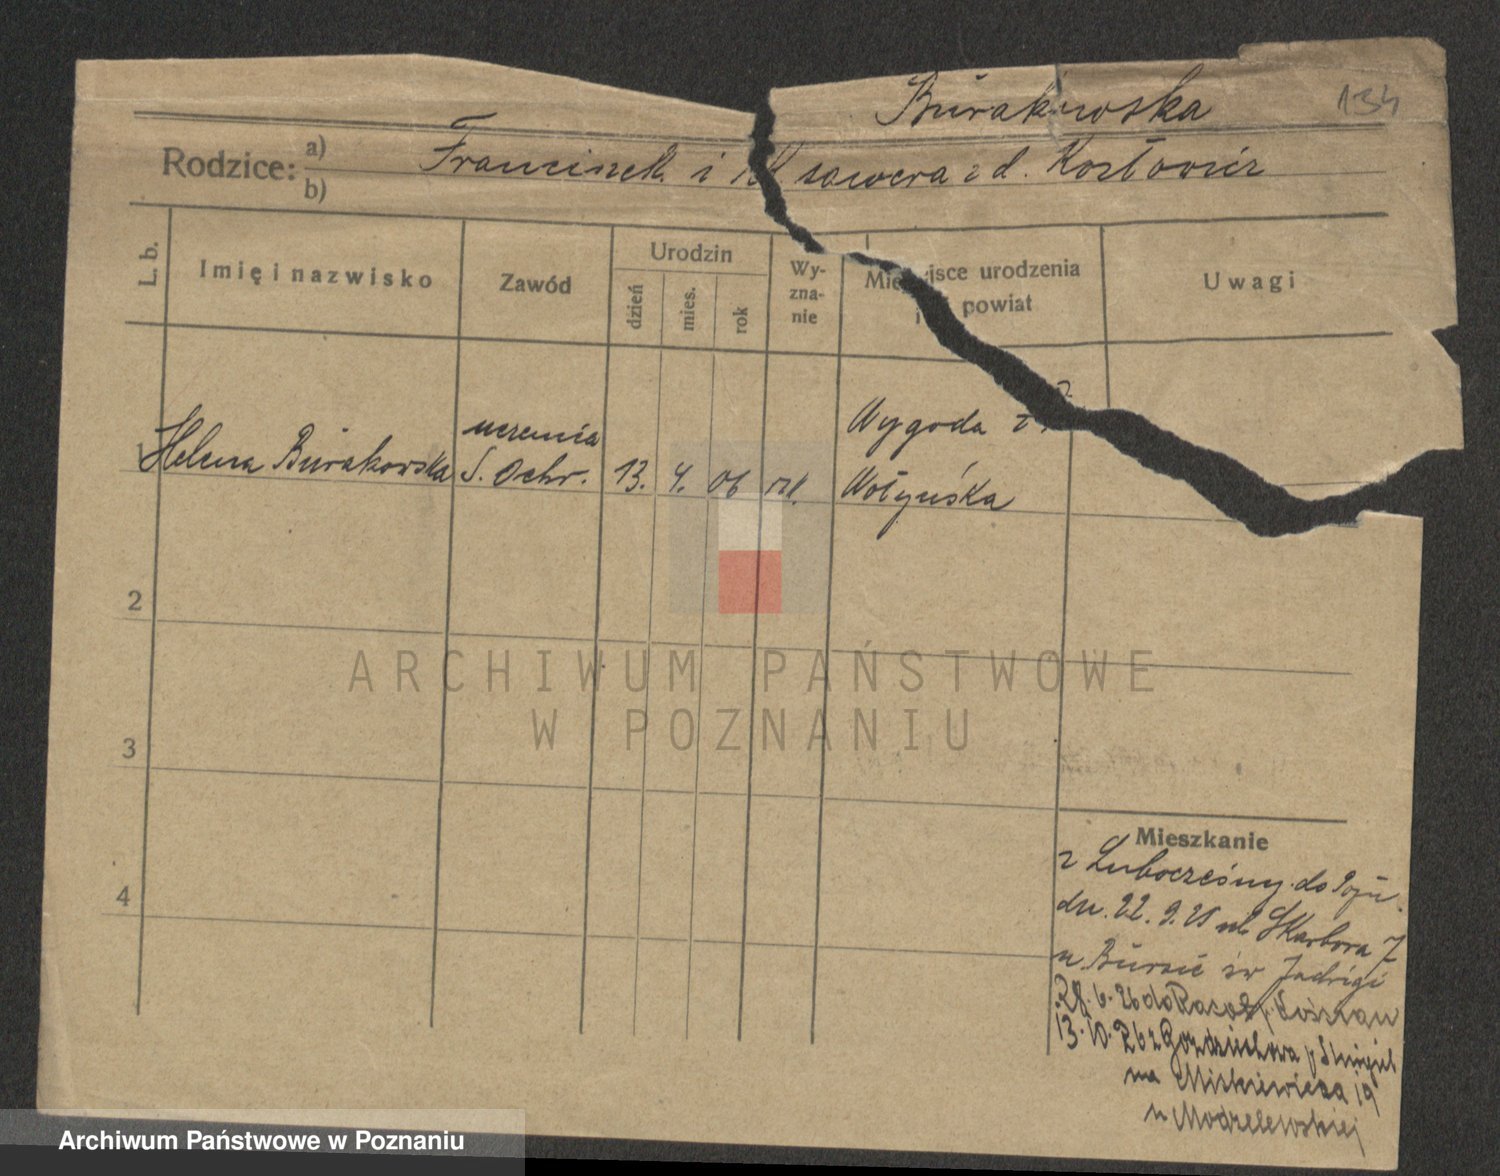 Burakowska
134
Rodzice: a)
b)
Franciszek i Ksawera z d. Kozłowicz
L. b.
Imię i nazwisko
Zawód
Urodzin
dzień
mies.
rok
Wy-
zna-
nie
Miejsce urodzenia
i powiat
Uwagi
1
Helena Burakowska
uczenica
S. Ochr.
13. 4. 06
rzk.
Wygoda z.
Wołyńska
2
3
4
Mieszkanie
z
do
dn. 22. 9. 25 ul. Skarbora 7
u Bursie św Jadwigi
28. 6. 26 do Racot p. Kościan
13. 10. 26 z Gozdziechowa p Śmigiel
na Mickiewicza 19
u Modzelewskiej
ARCHIWUM PAŃSTWOWE
W POZNANIU
Archiwum Państwowe w Poznaniu